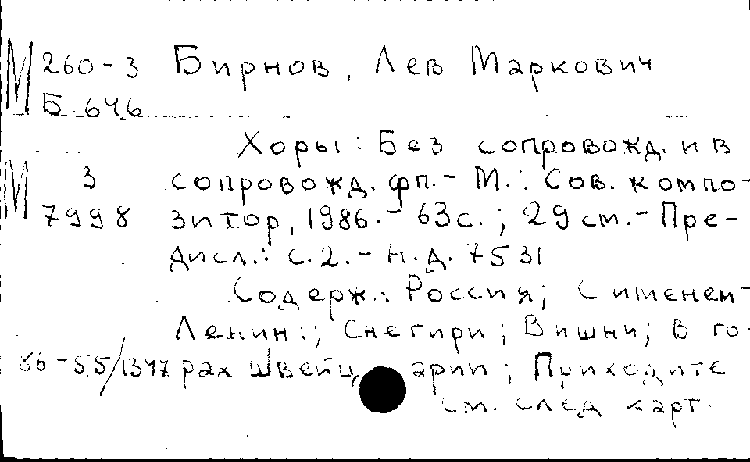 М 260-3 Бирнов, Лев Маркович
Б 646
Хоры: Без сопровожд. и в
М 3 сопровожд. фп. - М.: Сов. компо-
7998 зитор, 1986. - 63с.; 29см. - Пре-
дисл.: с.2. - н.д. 7531
Содерж.: Россия; С именем
Ленин:; Снегири; Вишни; В го-
86-55/1347 рах Швейцарии; Приходите
см. след карт.